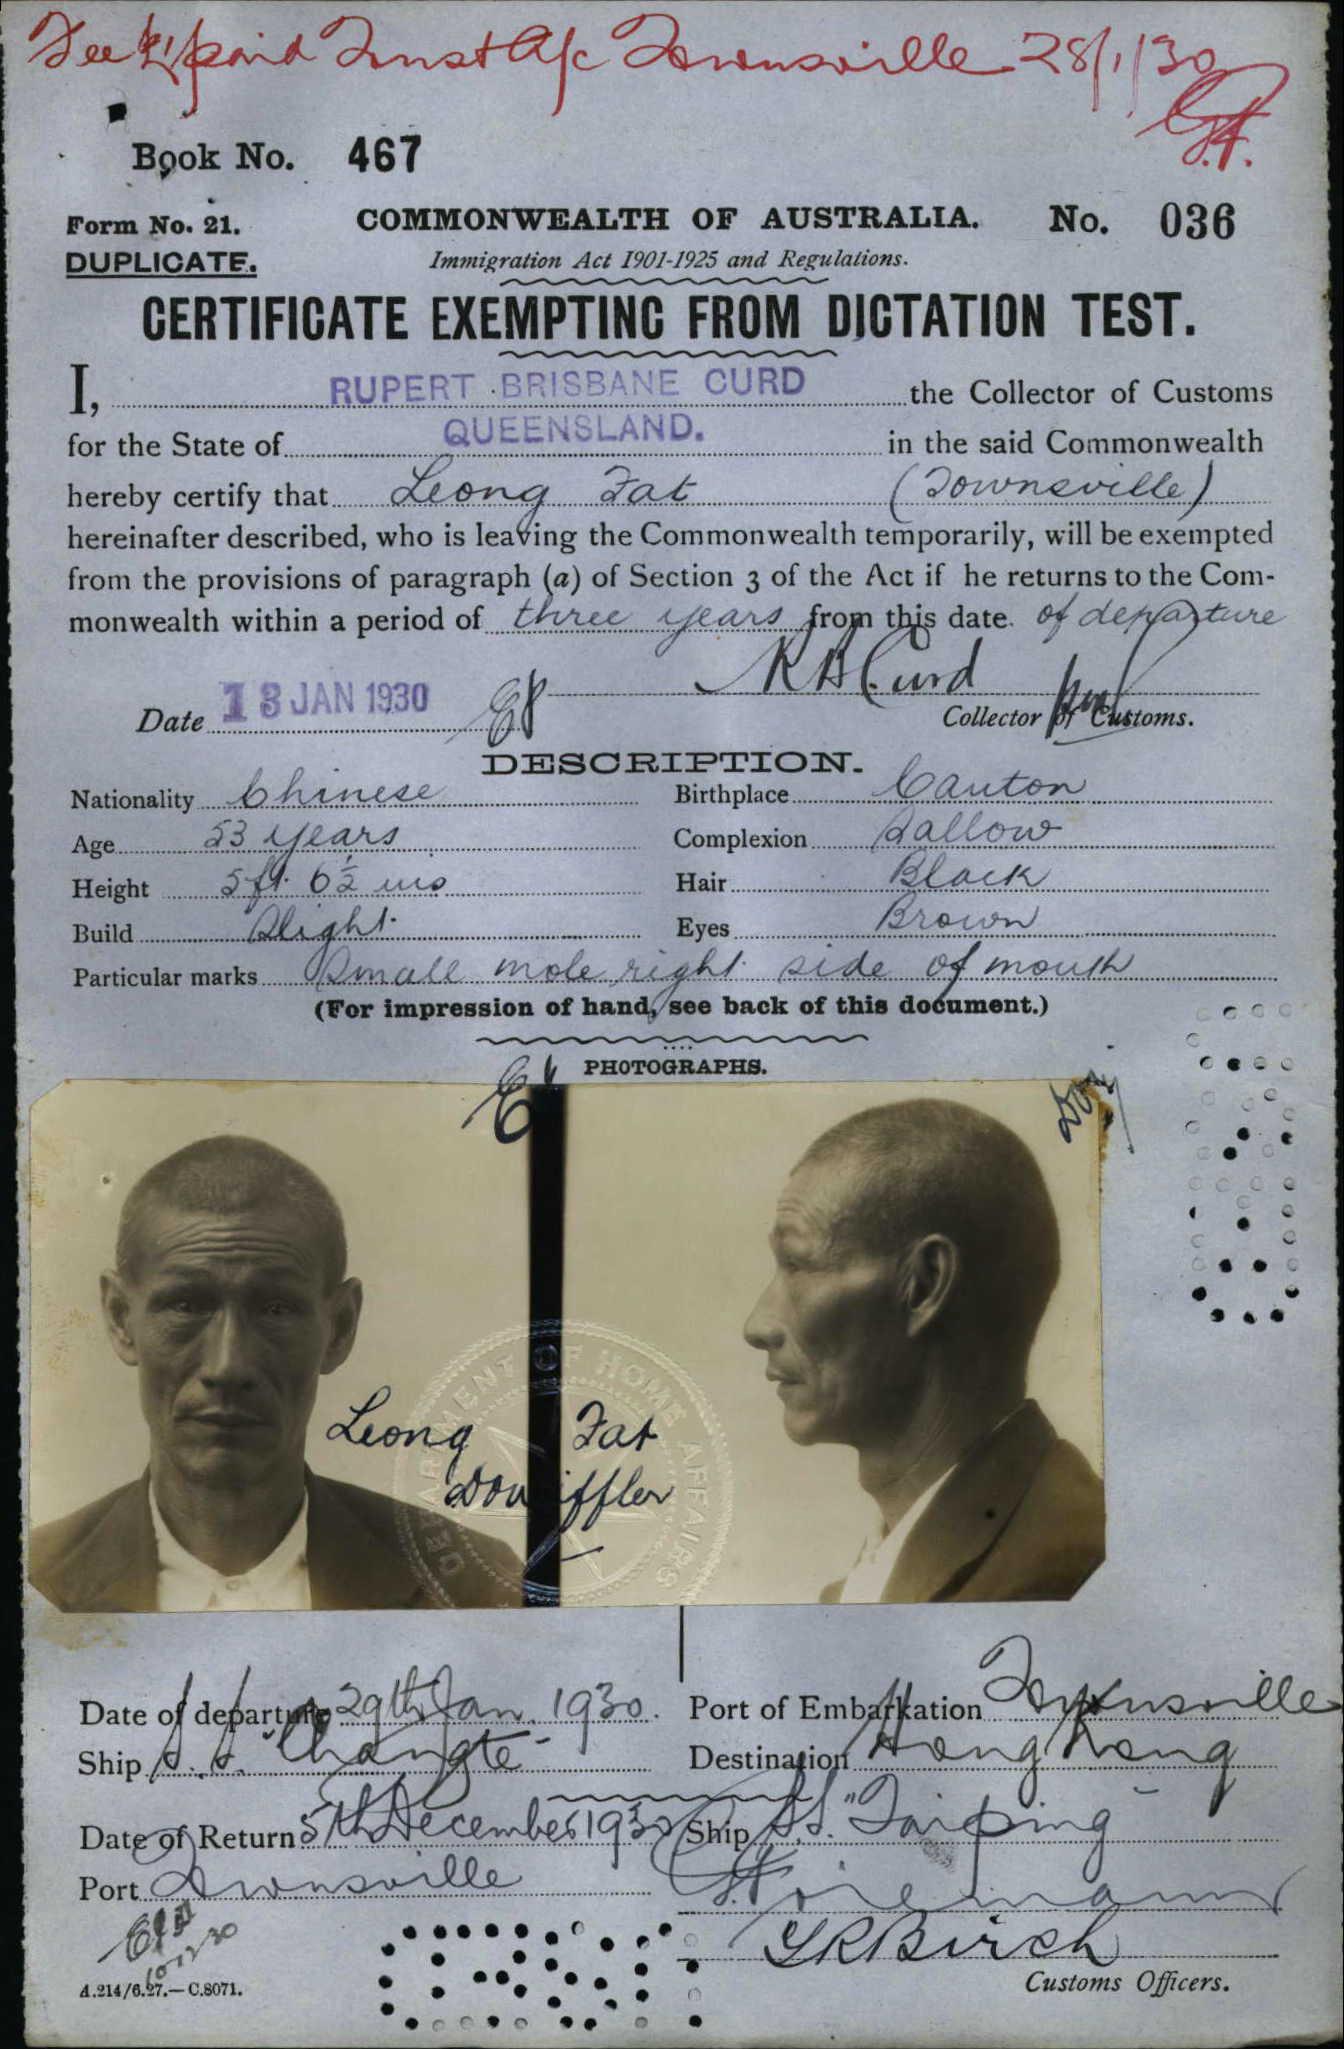 Fee £1 paid Trust A/c Townsville 28/1/30
G.F.
Book No. 467
Form No. 21. COMMONWEALTH OF AUSTRALIA. No. 036
DUPLICATE. Immigration Act 1901-1925 and Regulations.
CERTIFICATE EXEMPTING FROM DICTATION TEST.
I, RUPERT BRISBANE CURD the Collector of Customs
for the State of QUEENSLAND. in the said Commonwealth
hereby certify that Leong Fat (Townsville)
hereinafter described, who is leaving the Commonwealth temporarily, will be exempted
from the provisions of paragraph (a) of Section 3 of the Act if he returns to the Com-
monwealth within a period of three years from this date of departure
R B Curd
Date 13 JAN 1930 Collector of Customs.
DESCRIPTION.
Nationality Chinese Birthplace Canton
Age 53 years Complexion Sallow
Height 5ft. 6½ ins Hair Black
Build Slight Eyes Brown
Particular marks Small mole right side of mouth
(For impression of hand, see back of this document.)
PHOTOGRAPHS.
DEPARTMENT OF HOME AFFAIRS
Leong Fat
Date of departure 29th Jan. 1930. Port of Embarkation Townsville
Ship S.S. "Changte" Destination Hong Kong
Date of Return 5th December 1930 Ship S.S. "Taiping"
Port Townsville
10.12.30
Birch
A.214/6.27.—C.8071. Customs Officers.